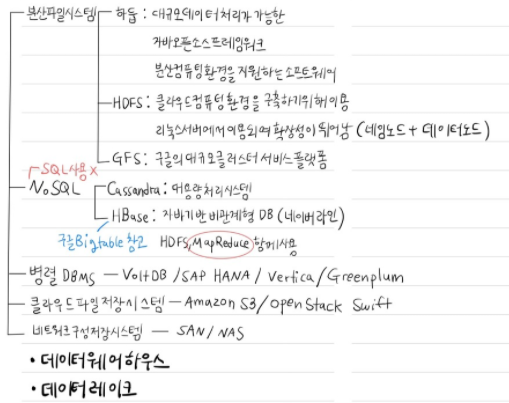 분산파일시스템 하둡: 대규모데이터처리가 가능한
자바오픈소스프레임워크
분산컴퓨팅환경을 지원하는 소프트웨어
HDFS: 클라우드컴퓨팅환경을 구축하기위해 이용
리눅스서버에서 이용되며 확장성이 뛰어남 (네임노드 + 데이터노드)
GFS: 구글의 대규모클러스터 서비스 플랫폼
SQL사용 X
NoSQL Cassandra: 대용량처리시스템
HBase: 자바기반 비관계형 DB (네이버라인)
구글Bigtable 참고 HDFS, MapReduce 함께사용
병렬 DBMS — VoltDB / SAP HANA / Vertica / Greenplum
클라우드파일저장시스템 — Amazon S3 / OpenStack Swift
네트워크구성저장시스템 — SAN / NAS
• 데이터웨어하우스
• 데이터레이크